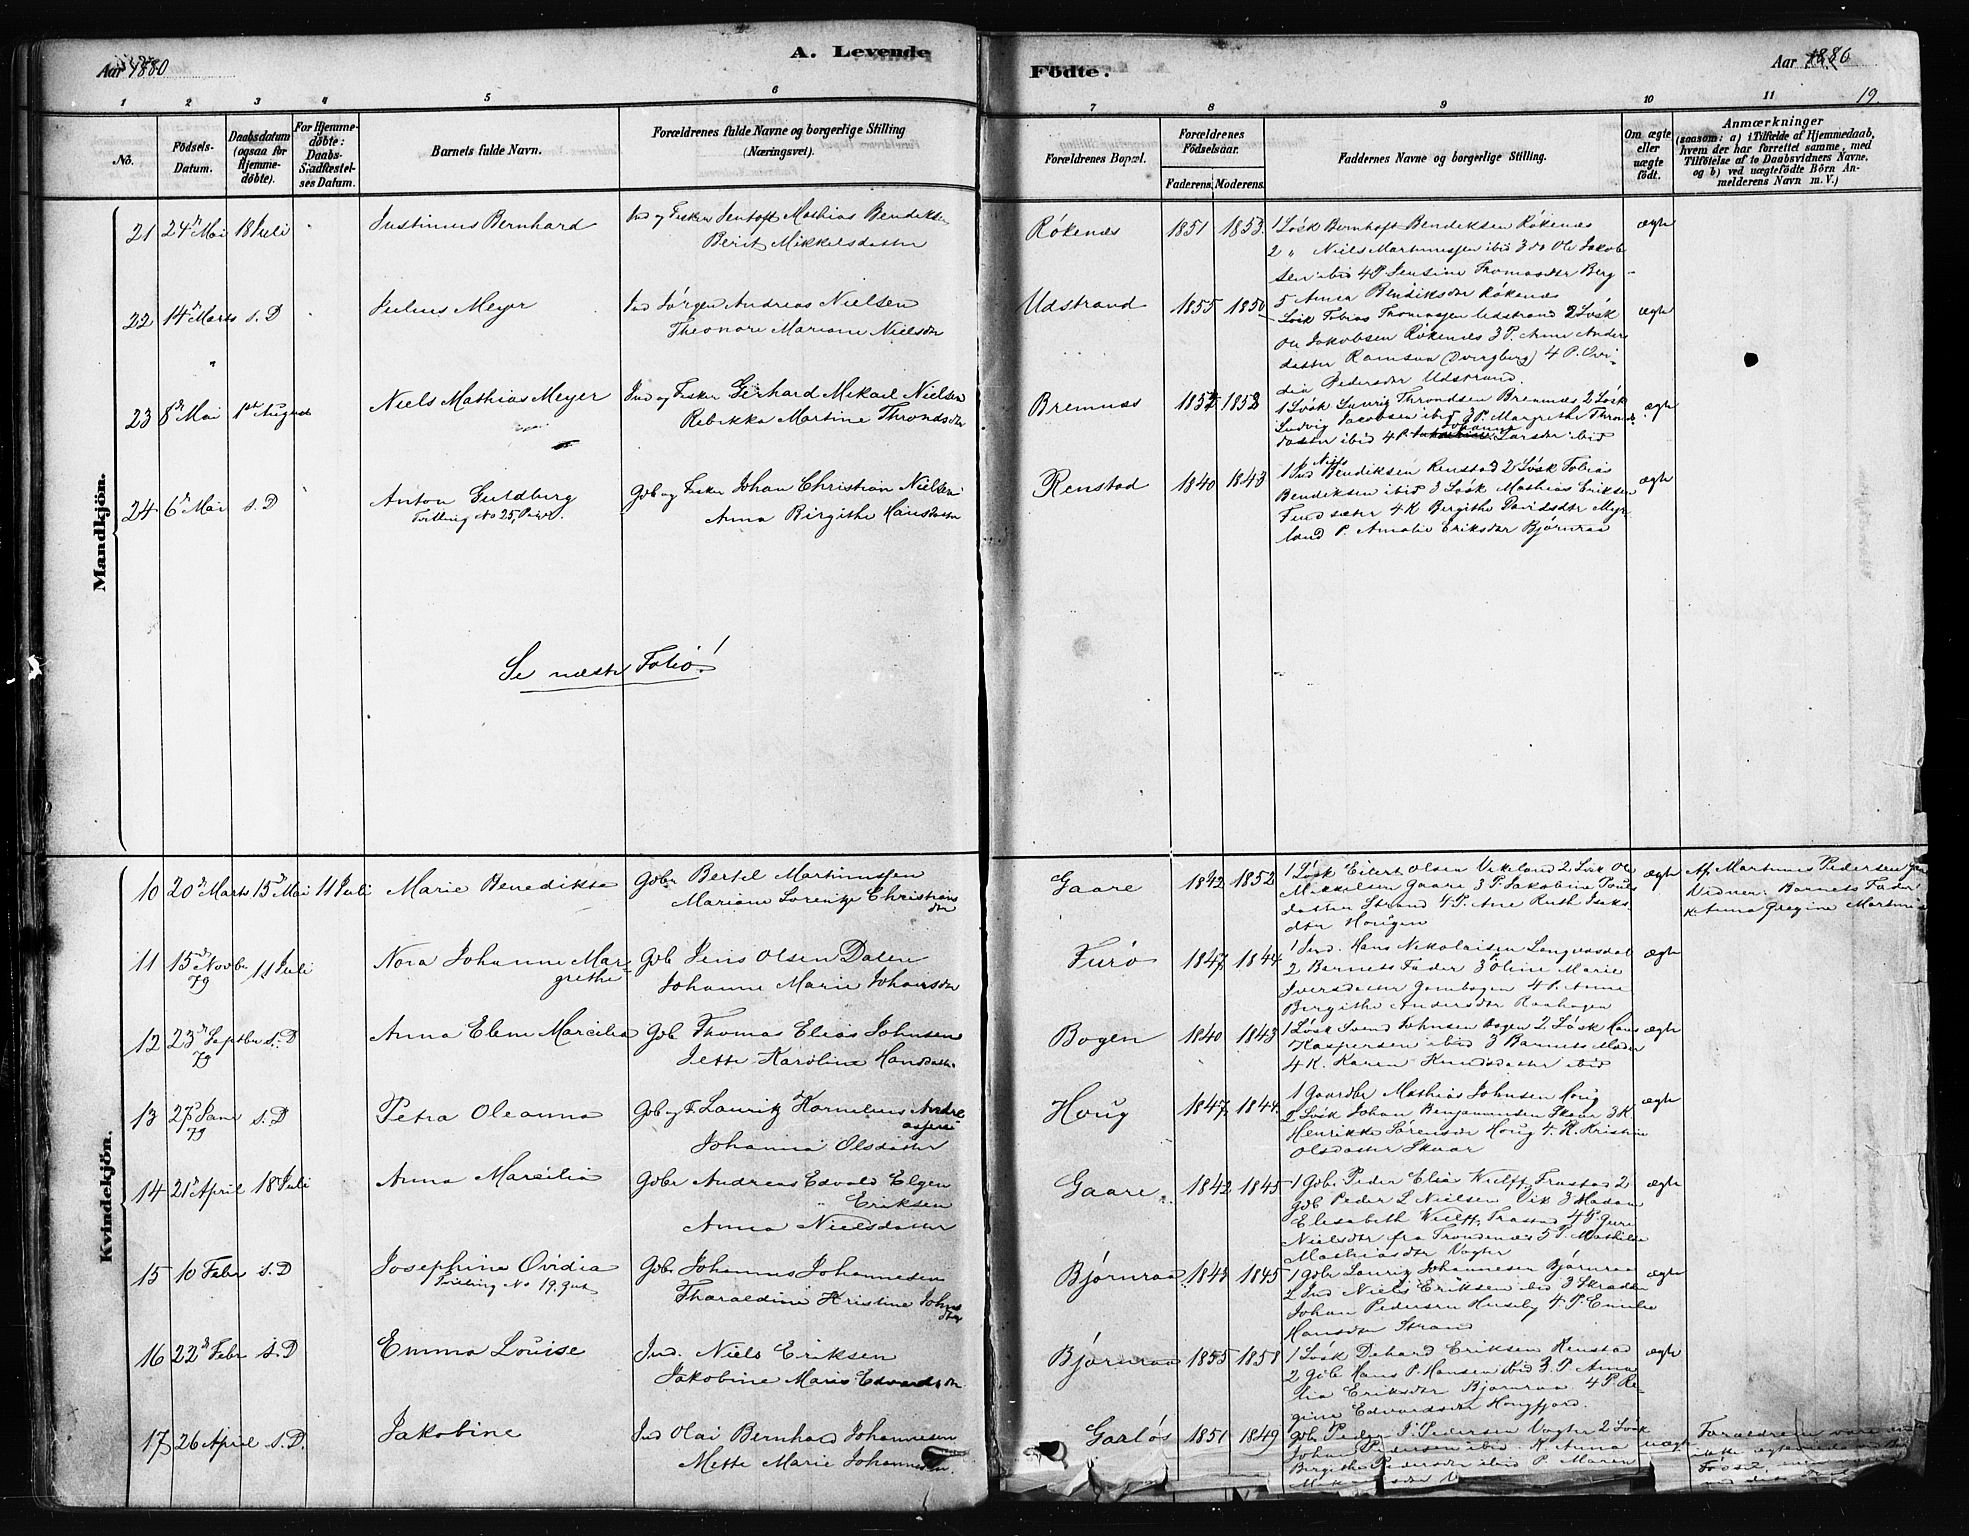 Aar 1880
A. Levende
Födte.
Aar 1880
19.
1 2 3 4 5 6 7 8 9 10 11
No.
Födsels-
Datum.
Daabsdatum
(ogsaa for
Hjemme-
döbte).
For Hjemme-
döbte:
Daabs-
Stadfæstel-
ses Datum.
Barnets fulde Navn.
Forældrenes fulde Navne og borgerlige Stilling
(Næringsvei).
Forældrenes Bopæl.
Forældrenes
Födselsaar.
Faderens. Moderens.
Faddernes Navne og borgerlige Stilling.
Om ægte
eller
uægte
födt.
Anmærkninger
(saasom: a) i Tilfælde af Hjemmedaab,
hvem der har forrettet samme, med
Tilföielse af to Daabsvidners Navne,
og b) ved uægtefödte Börn An-
melderens Navn m. V.)
Mandkjön.
21 24de Mai 18 Juli Justinus Bernhard
Ind og Fisker Jentoft Mathias Bendiksen
Berit Mikkelsdatter
Røkenæs 1851 1853
1 Løsk Bernhoft Bendiksen Røkenæs
2 " Niels Martinussen ibid 3 do Ole Jakob
sen ibid 4 P. Jensine Thomasdtr Berg
5 Anna Bendiksdtr Røkenæs
ægte
22 14de Marts s. D Julius Meyer
Ind Jørgen Andreas Nielsen
Theonore Mariane Nielsdtr
Udstrand 1855 1850
Løsk Tobias Thomassen Udstrand 2 Løsk
Ole Jakobsen Røkenæs 3 P. Anne Anders
datter Ramsaa (Dverberg) 4 P. Ovi-
dia Pedersdtr Udstrand.
ægte
23 8de Mai 1ste August Niels Mathias Meyer
Ind og Fisker Gerhard Mikael Nielsen
Rebekka Martine Throndsdtr
Bremnes 1852
1 Løsk Lavrits Throndsen Bremnæs 2 Løsk
Ludvig Jakobsen ibid 3 P. Margrethe Thronds
datter ibid 4 P. Johanna Larsdtr ibid
ægte
24 6te Mai s. D Anton Guldberg
Tvilling No 25, Pige.
Gdb og Fisker Johan Christian Nielsen
Anna Birgithe Hansdatter
Renstad 1840 1843
1 Ind Nils Bendiksen Renstad 2 Løsk Tobias
Bendiksen ibid 3 Løsk Mathias Eriksen
Findsæter 4 K Bergithe Davidsdtr Myr
land P. Amalie Eriksdtr Bjørnraa
ægte
Se næste Folio!
Kvindekjön.
10 20de Marts 15de Mai 11 Juli Marie Benedikte
Gdbr Bertel Martinussen
Mariane Lorentze Christians
dtr
Gaare 1842 1852
1 Løsk Eilert Olsen Vikeland 2 Løsk Ole
Mikkelsen Gaare 3 P. Jakobine Pouls
datter Strand 4 P. Ane Ruth Isaks-
dtr Hougen
ægte
Af Martinus Pedersen
Vidner: Barnets Fader
K. Anna Gregine Martinus
11 15de Novbr 79 11 Juli Nora Johanne Mar-
grethe
Gdb Jens Olsen Dalen
Johanne Marie Johansdtr
Furø 1847 1844
1 Ind. Hans Nikolaisen Langvasdal
2 Barnets Fader 3 Oline Marie
Iversdatter Gambogen 4 P. Anne
Birgithe Andersdtr Raahogen
ægte
12 23de Septbr 79 s. D Anna Elene Marcilia
Gdb Thomas Elias Johnsen
Jette Karoline Hansdatter
Bogen 1840 1843
1 Løsk Svend Johnsen Bogen 2 Løsk Hans
Kaspersen ibid 3 Barnets Moder
4 K. Karen Knudsdatter ibid
ægte
13 27de Janr 79 s. D Petra Oleanna
Gdb og F. Lauritz Kornelius Andre-
assen
Johanna Olsdatter
Houg 1847 1844
1 Gaardbr Mathias Johnsen Houg
2 Løsk Johan Benjaminsen Skaar 3 K
Henrikke Sørensdtr Houg 4 K. Kristine
Olsdatter Skaar
ægte
14 21de April 18 Juli Anna Marcilia
Gdbr Andreas Edvald Elgen
Eriksen
Anna Nielsdatter
Gaare 1842 1845
1 Gdb. Peder Elias Wulff Trastad 2
Gdb Peder L Nielsen Vik 3 Madam
Elisabeth Wulff, Trastad 4 P. Guri
Nielsdtr fra Trondenæs 5 P. Mathilde
Mathiasdtr Vogter
ægte
15 10 Febr s. D Josephine Ovidia
Tvilling No 19, Gut
Gdbr Johannes Johannesen
Tharaldine Kristine Johns
dtr
Bjørnraa 1843 1845
1 Gdbr Lauriz Johannesen Bjørnraa
2 Ind Niels Eriksen ibid 3 Skrædder
Johan Pedersen Huseby 4 P. Emilie
Hansdtr Strand
ægte
16 22de Febr s. D Emma Louise
Ind. Niels Eriksen
Jakobine Marie Edvardsdtr
Bjørnraa 1855 1858
1 Løsk Dehard Eriksen Renstad
2 Gdb Hans P. Hansen ibid 3 P. Ama
lia Eriksdtr Bjørnraa 4 P. Re-
gine Edvardsdtr Hougfjord.
ægte
17 26 April s. D. Jakobine
Ind Olai Bernhard Johannesen
Mette Marie Johannesdtr.
Garløs 1851 1849
Gdb Peder J. Pedersen Vogter 2 Løsk
Johan Pedersen ibid K Anna
Birgithe Pedersdtr ibid P Maren
uægte
Forældrene vare
ikke ægteviede
Fødsel